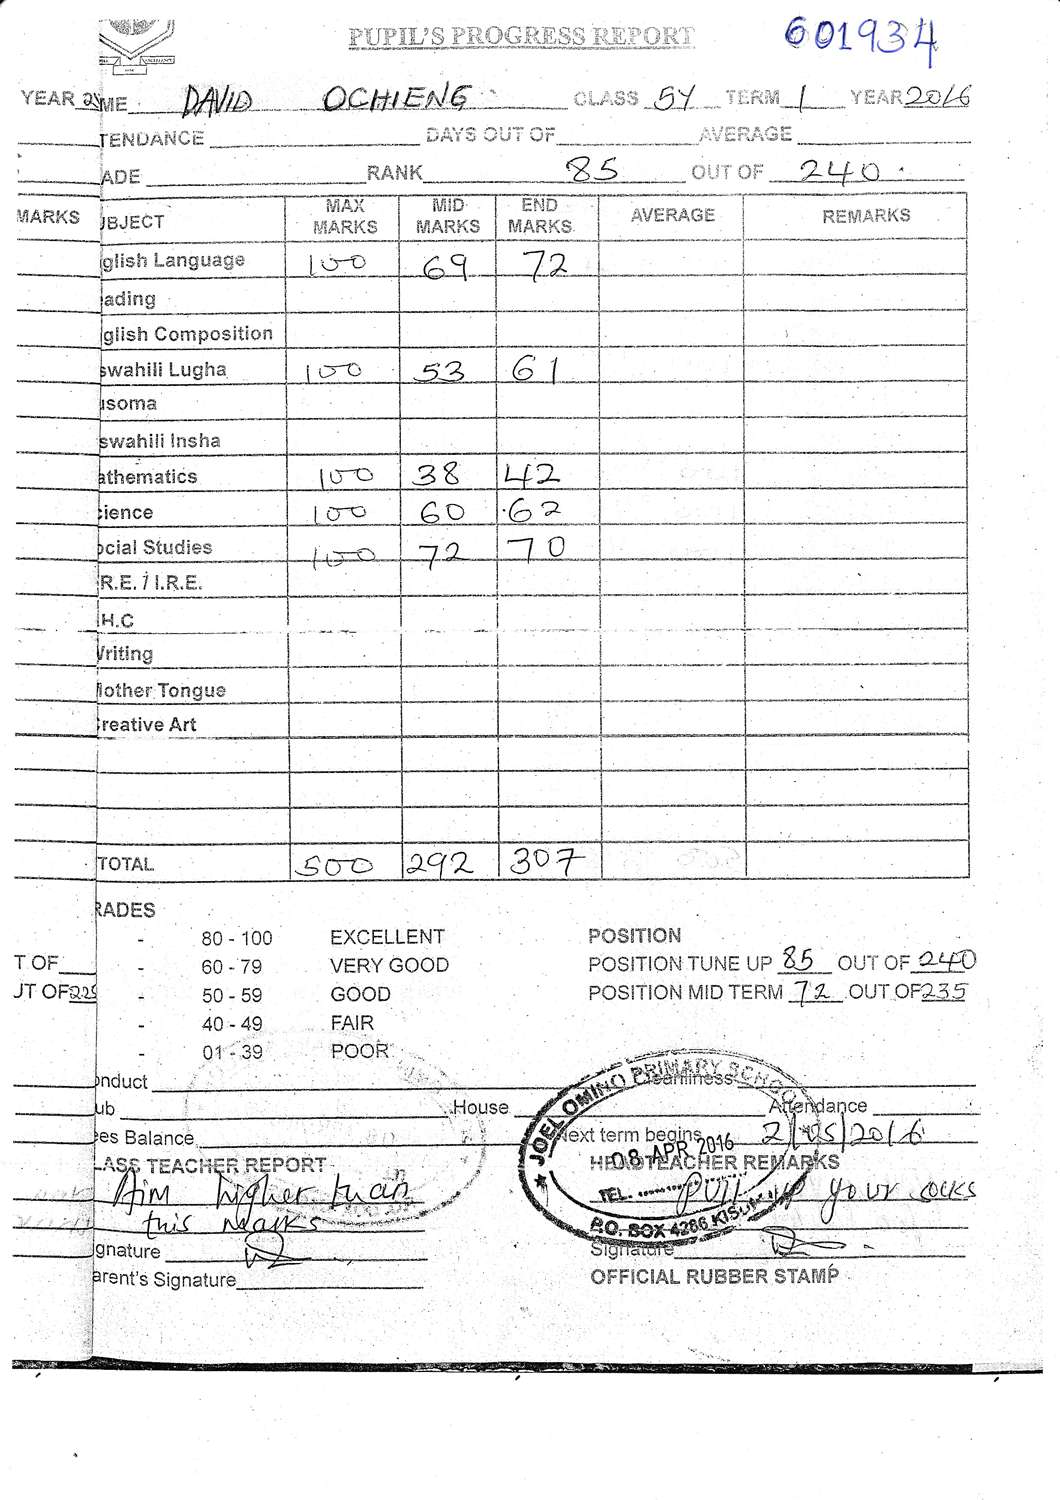 PUPIL'S PROGRESS REPORT 601934
YEAR ME DAVID OCHIENG CLASS 5Y TERM 1 YEAR 2016
TENDANCE DAYS OUT OF AVERAGE
ADE RANK 85 OUT OF 240
MARKS BJECT MAX MARKS MID MARKS END MARKS AVERAGE REMARKS
glish Language 100 69 72
ading
glish Composition
swahili Lugha 100 53 61
usoma
swahili Insha
athematics 100 38 42
ience 100 60 62
ocial Studies 100 72 70
R.E. / I.R.E.
H.C
Writing
Mother Tongue
Creative Art
TOTAL 500 292 307
RADES
- 80 - 100 EXCELLENT POSITION
T OF - 60 - 79 VERY GOOD POSITION TUNE UP 85 OUT OF 240
UT OF - 50 - 59 GOOD POSITION MID TERM 72 OUT OF 235
- 40 - 49 FAIR
- 01 - 39 POOR
onduct Cleanliness
ub House Attendance
ees Balance Next term begins 2/05/2016
LASS TEACHER REPORT HEADTEACHER REMARKS
Aim higher than Pull up your socks
this marks
gnature Signature
arent's Signature OFFICIAL RUBBER STAMP
JOEL OMINO PRIMARY SCHOOL
08 APR 2016
TEL.
P.O. BOX 4286 KISUMU